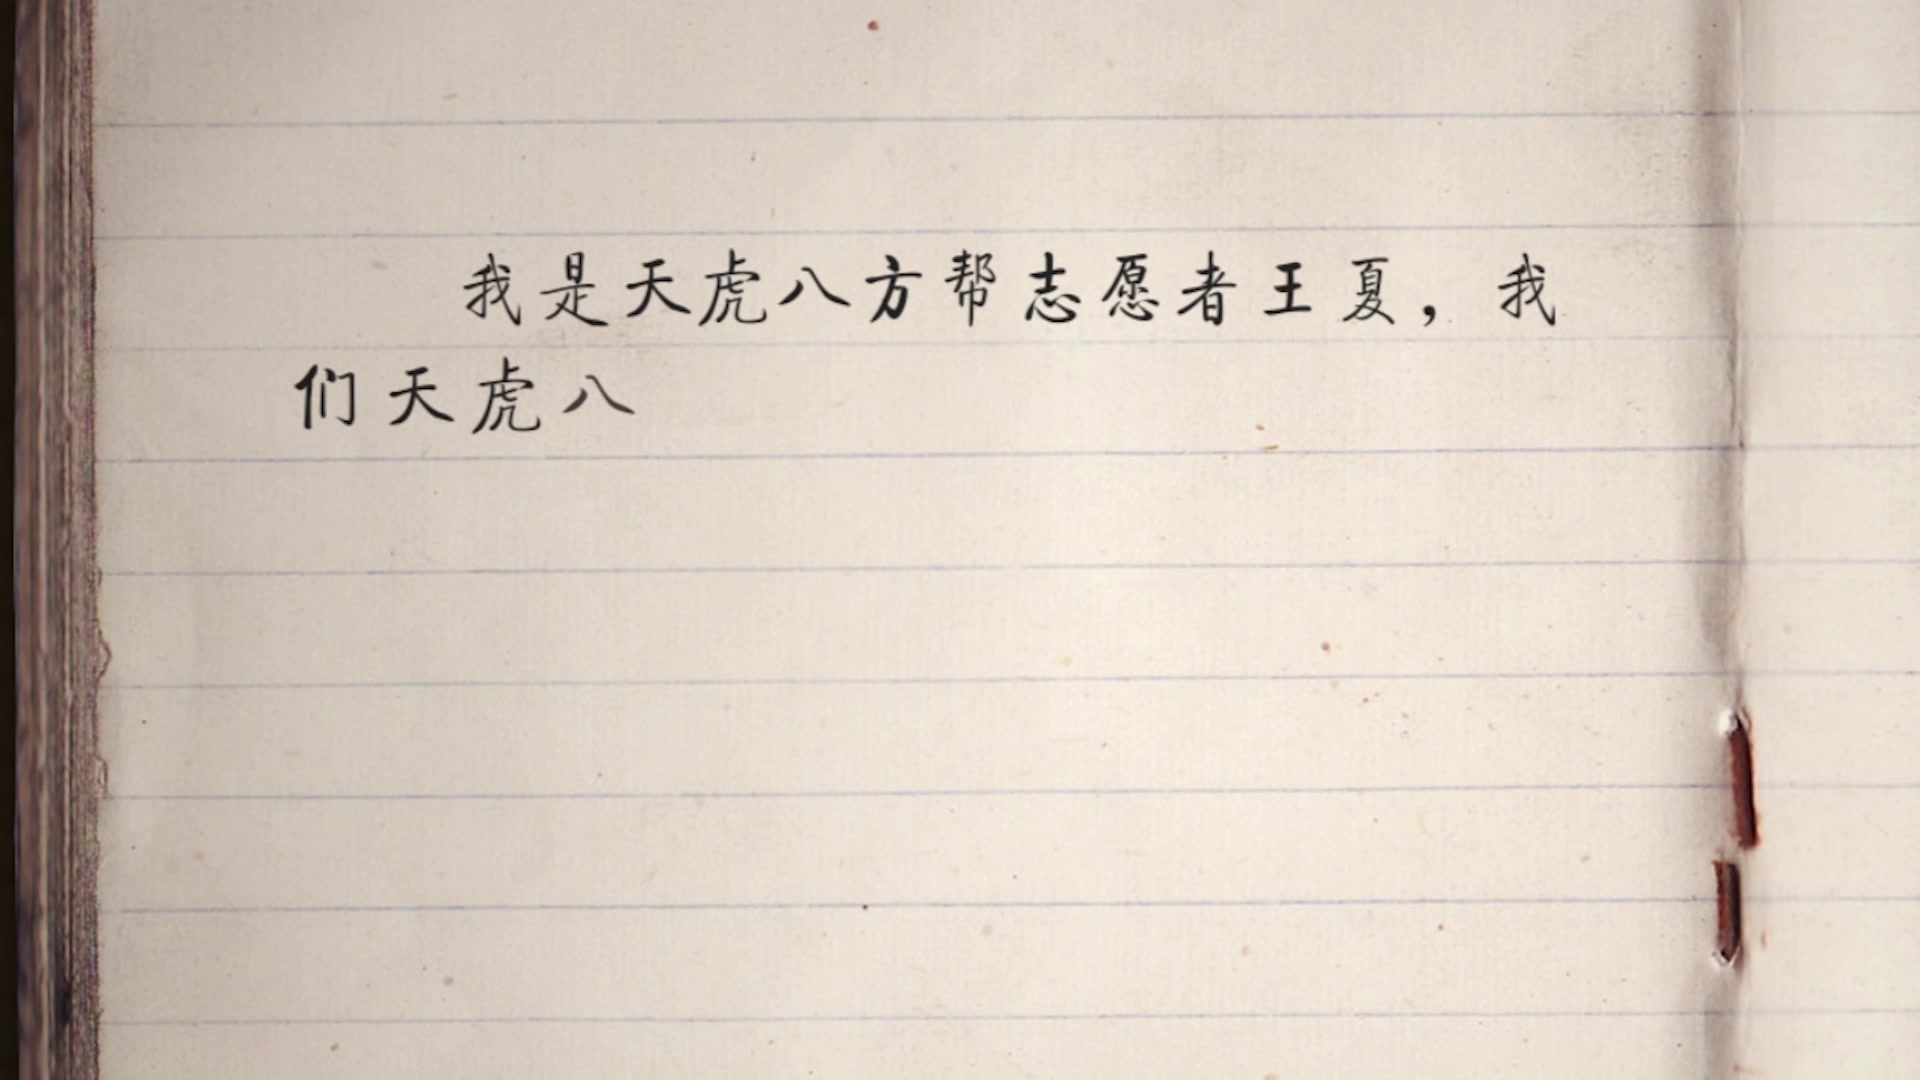 我是天虎八方帮志愿者王夏，我
们天虎八